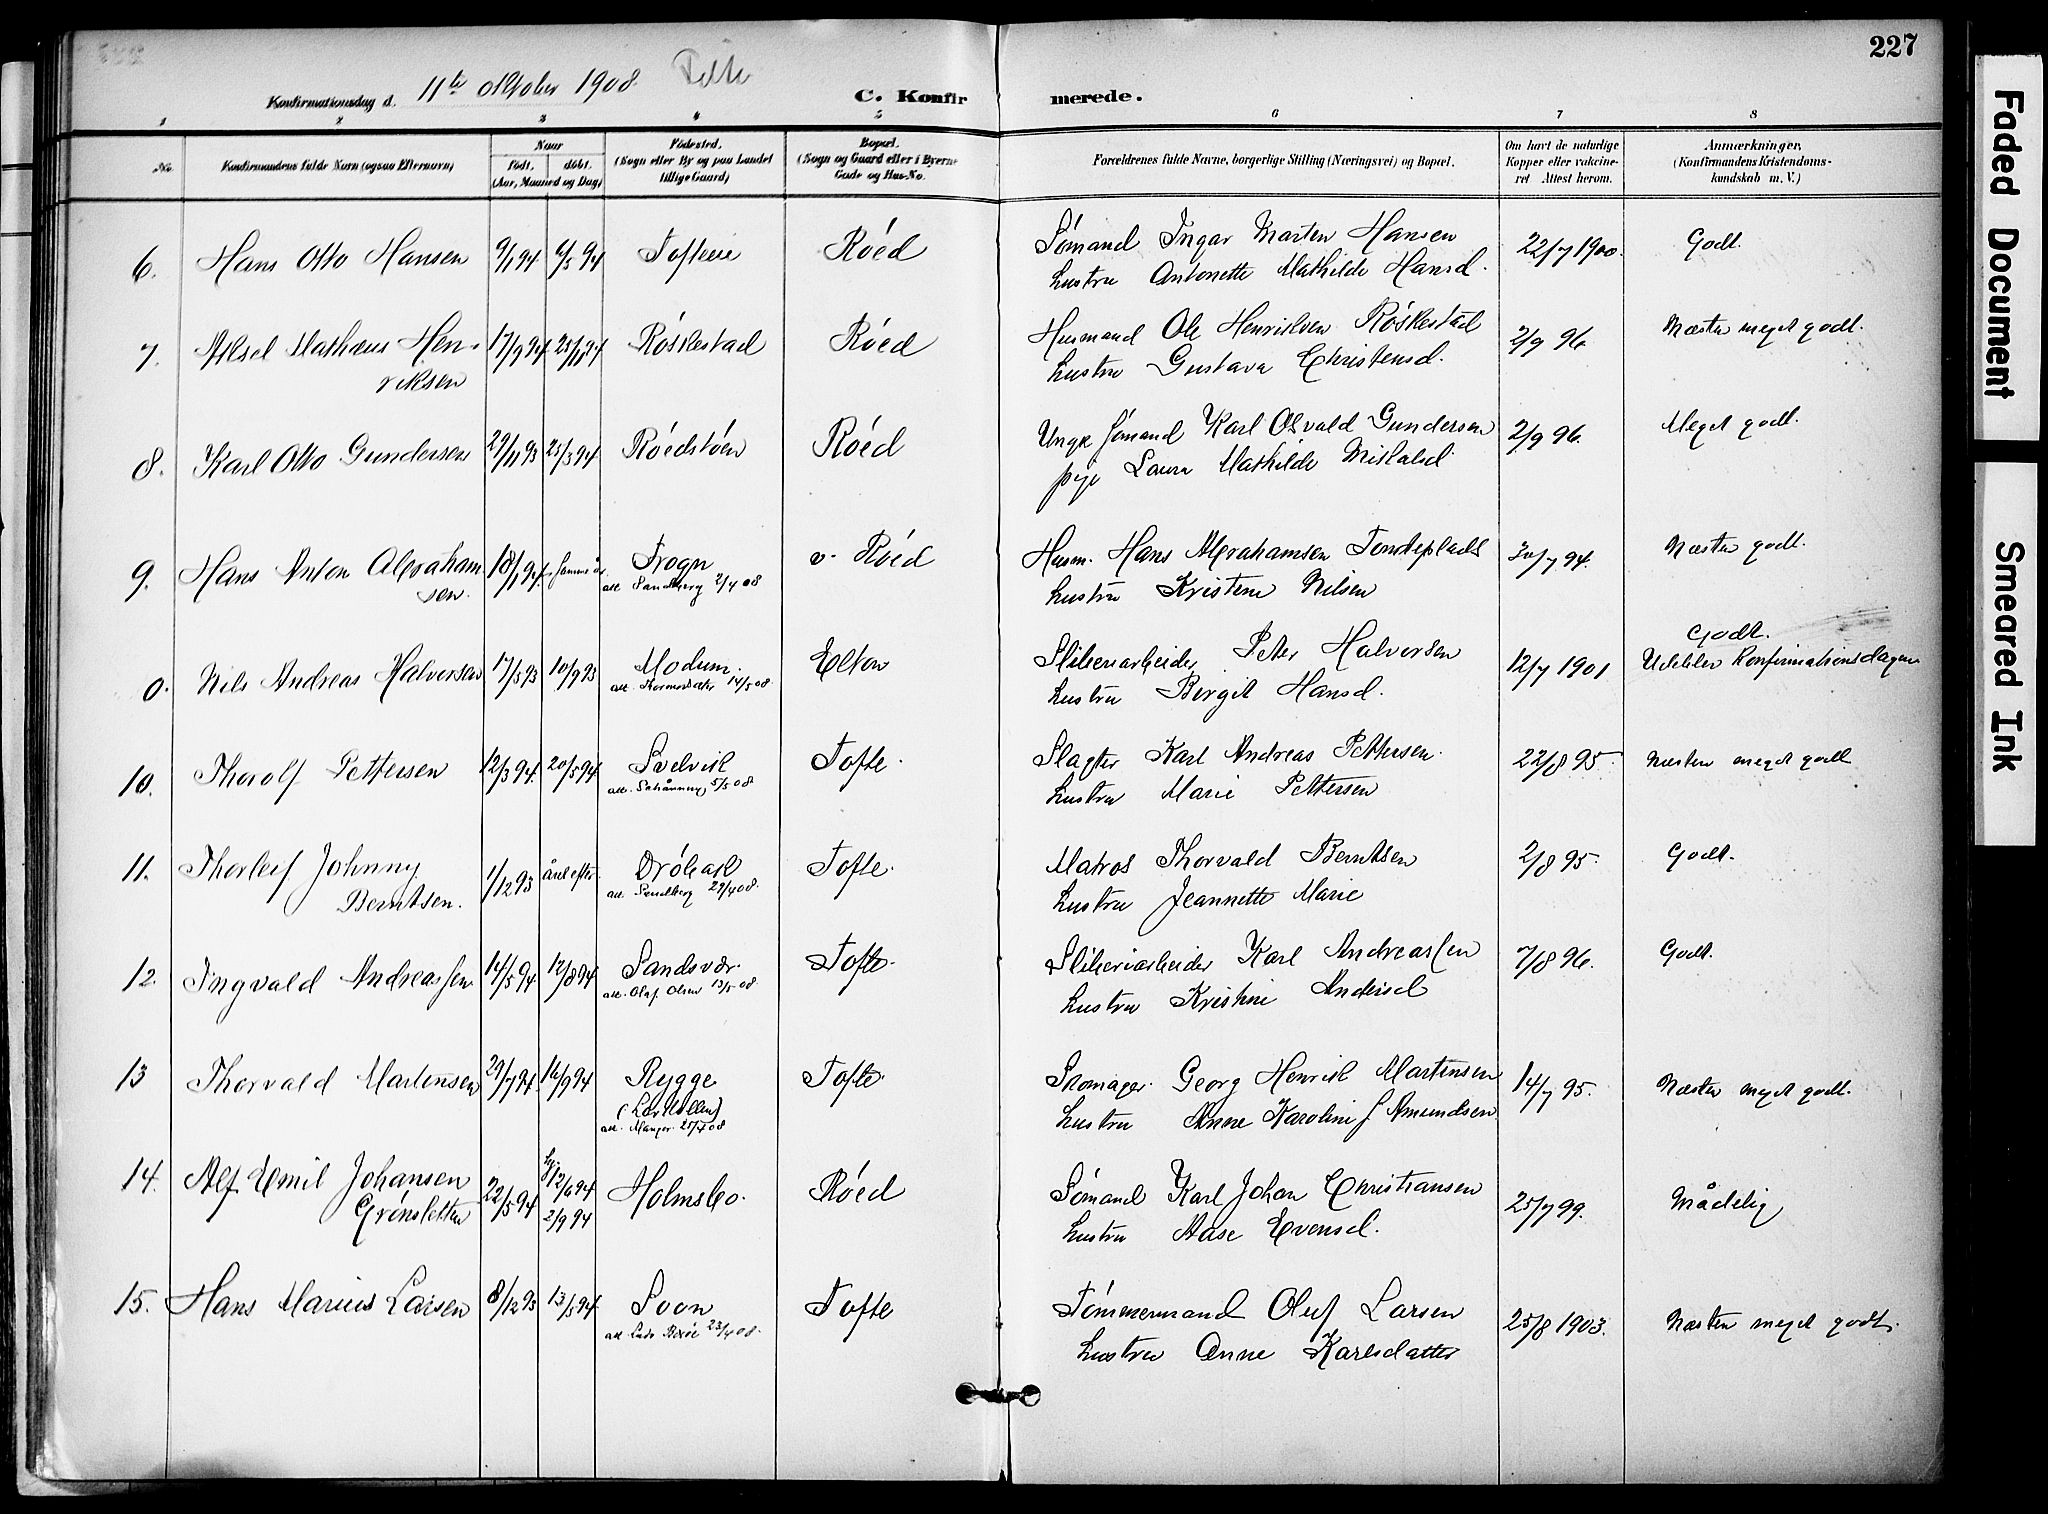 227
11te oktober 1908. Tofte
Konfirmationsdag d.
C. Konfirmerede.
1 2 3 4 5 6 7 8
No. Konfirmandens fulde Navn (ogsaa Efternavn) Naar født, døbt, (Aar, Maaned og Dag) Fødested. (Sogn eller By og paa Landet tillige Gaard) Bopæl. (Sogn og Gaard eller i Byerne Gade og Hus-No. Forældrenes fulde Navne, borgerlige Stilling (Næringsvei) og Bopæl. Om havt de naturlige Kopper eller vaccineret Attest herom. Anmærkninger, (Konfirmandens Kristendomskundskab m. V.)
6. Hans Otto Hansen 9/1 94 6/5 94 Tofteeie Røed Sømand Ingar Marten Hansen 22/7 1900. Godt.
hustru Antonette Mathilde Hansd.
7. Aksel Mathæus Hen- 17/9 94 25/11 94 Røskestad Røed Husmand Ole Henriksen Røskestad 2/9 96 Næsten meget godt.
riksen hustru Gustava Christensd.
8. Karl Otto Gundersen 29/11 93 25/3 94 Røedstøen Røed Ungk sømand Karl Osvald Gundersen 2/9 96. Meget godt.
pige Laura Mathilde Nilsd
9. Hans Anton Abraham- 18/1 94 samme år Frogn v. Røed Husm. Hans Abrahamsen Tondeplads 30/7 94. Næsten godt.
sen. att. Sandberg 2/4 08 hustru Kristine Nilsen
0. Nils Andreas Halvorsen 17/5 93 10/9 93 Modum. Elton Sliberiarbeider Peter Halvorsen 12/7 1901 Godt.
Udeblev Konfirmationsdagen
att. 14/5 08. hustru Birgit Hansd.
10. Thorolf Pettersen 12/3 94. 20/5 94 Svelvik Tofte. Slagter Karl Andreas Pettersen. 22/8 95. Næsten meget godt
att. 5/5 08 hustru Marie Pettersen
11. Thorleif Johnny 1/12 93 året efter. Drøbak Tofte. Matros Thorvald Berntsen 2/8 95. Godt.
Berntsen. att. Sandberg 29/4 08. hustru Jeannette Marie
12. Ingvald Andreassen 14/5 94 12/8 94 Sandsvær. Tofte. Sliberiarbeider Karl Andreassen 7/8 96. Godt.
att. Olaf Olsen 13/5 08. hustru Kristine Andersd
13 Thorvald Martensen 29/7 94. 16/9 94 Rygge Tofte. Skomager. Georg Henrik Martensen 14/7 95. Næsten meget godt.
(Larkollen)
att. Manger. 25/4 08 hustru Anne Karoline J Amundsen
14. Alf Emil Johansen 22/5 94 hj. 12/6 94 Holmsbo. Røed Sømand Karl Johan Christiansen 25/7 99. Mådelig
Grønsletten 2/9 94 hustru Aase Evensd.
15. Hans Marius Larsen 8/12 93 13/5 94 Soon Tofte Tømmermand Oluf Larsen 25/8 1903. Næsten meget godt.
att. 23/4 08. hustru Anne Karlsdatter
Faded Document
Smeared Ink